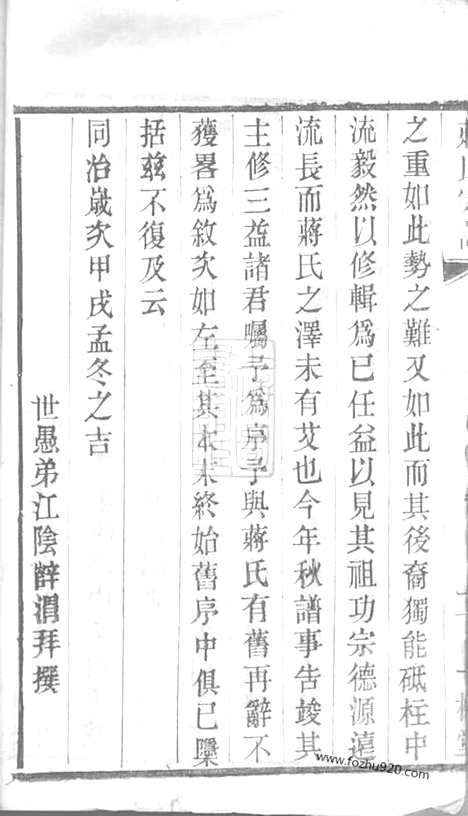 之重如此勢之難又如此而其後裔獨能砥柱中
流毅然以修輯爲己任益以見其祖功宗德源遠
流長而蔣氏之澤未有艾也今年秋譜事告竣其
主修三益諸君囑予爲序予與蔣氏有舊再辭不
獲畧爲敘次如左至其本末終始舊序中俱已檃
括兹不復及云
同治歲次甲戌孟冬之吉
世愚弟江陰薛渭拜撰
www.fozhu920.com